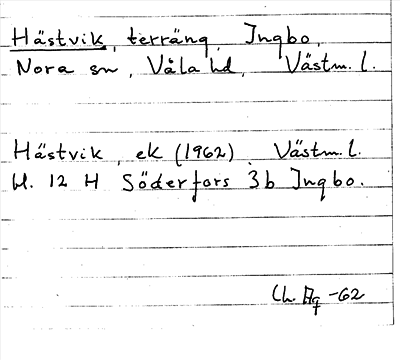 Hästvik, terräng, Ingbo,
Nora sn, Våla hd, Västm. l.
Hästvik, ek (1962) Västm. l.
bl. 12 H Söderfors 3b Ingbo.
-62